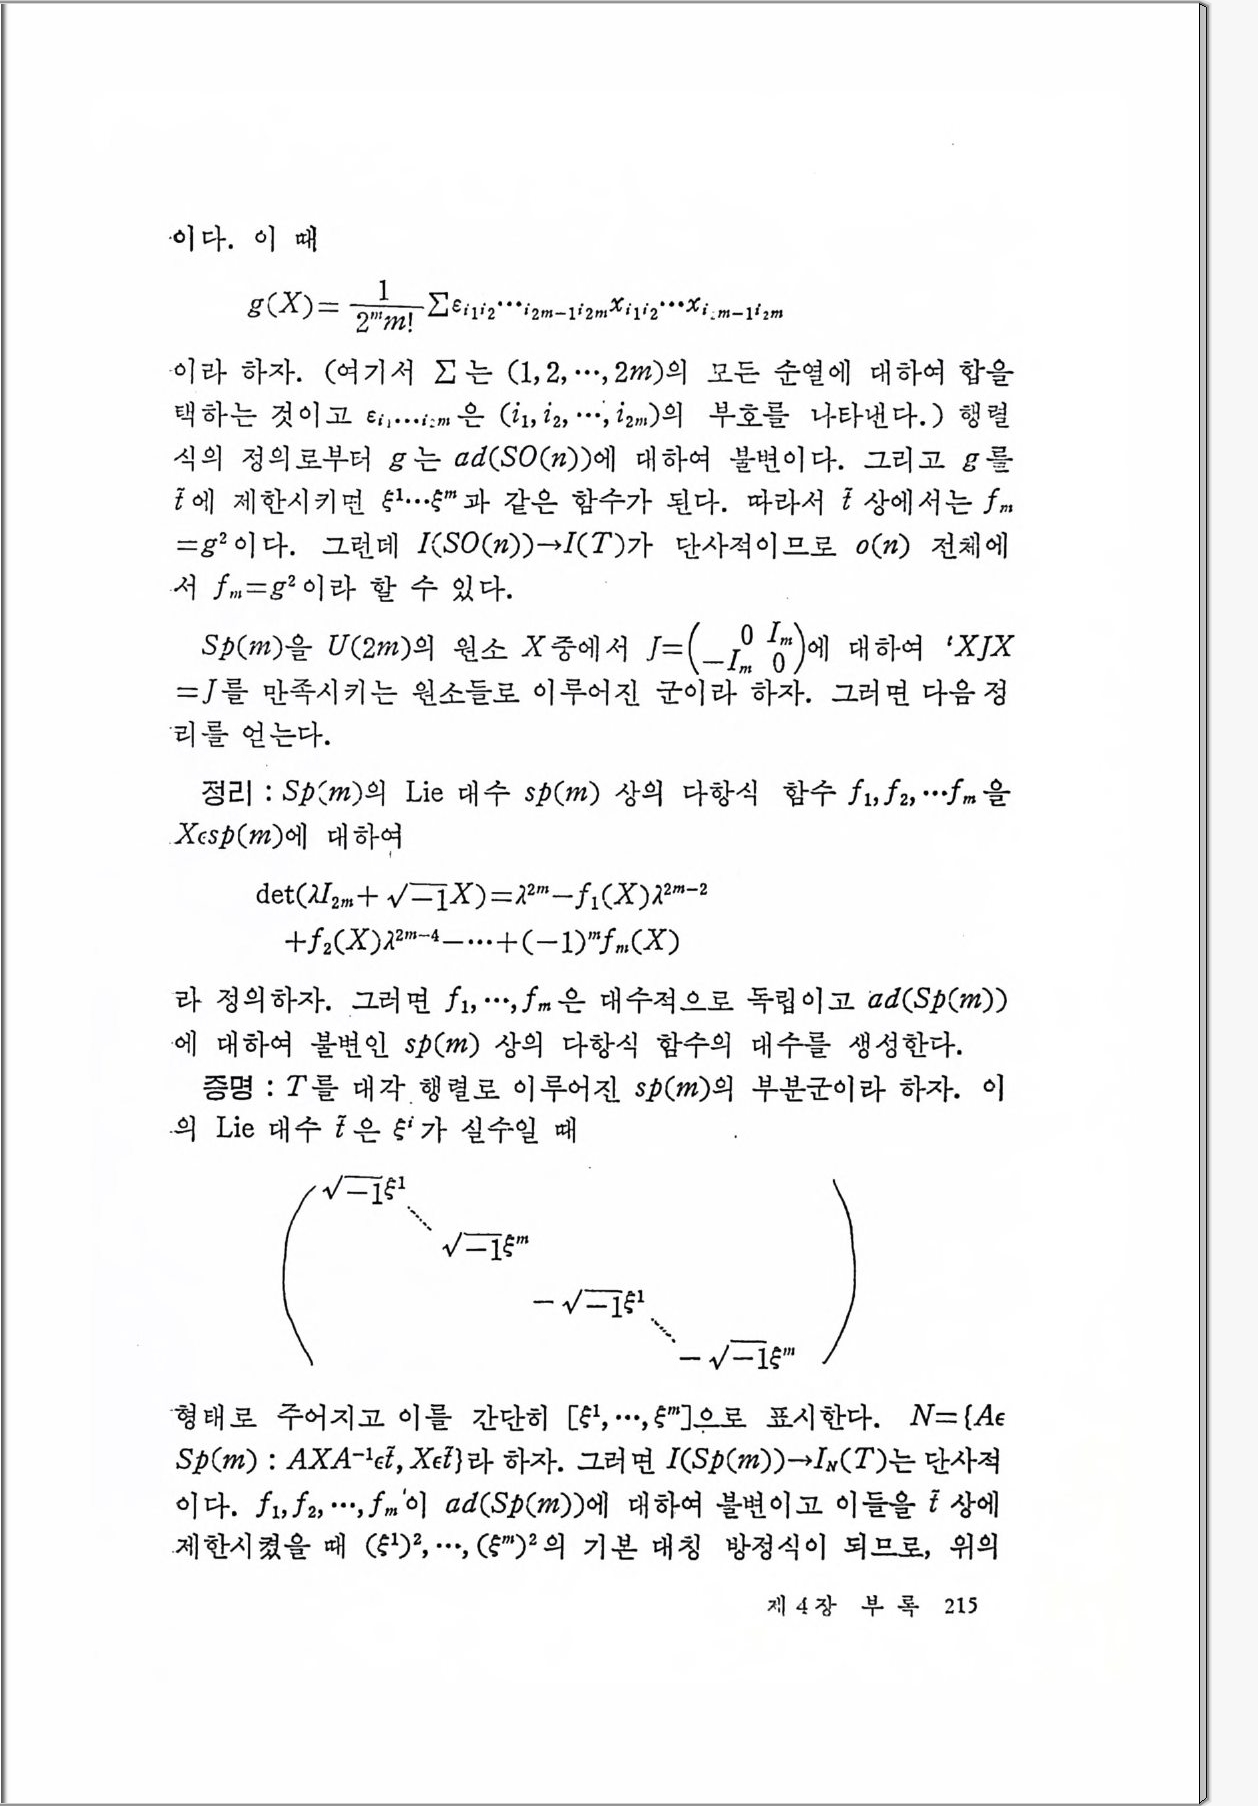 이다. 이 때
g(X)= 1/(2^m m!) Σε_{i1i2}···_{i2m−1i2m}x_{i1i2}···x_{i2m−1i2m}
이라 하자. (여기서 Σ는 (1, 2, ···, 2m)의 모든 순열에 대하여 합을
택하는 것이고 ε_{i1}..._{i2m}은 (i₁, i₂, ···, i_{2m})의 부호를 나타낸다.) 행렬
식의 정의로부터 g는 ad(SO(n))에 대하여 불변이다. 그리고 g를
t̃에 제한시키면 ξ¹···ξᵐ과 같은 함수가 된다. 따라서 t̃ 상에서는 f_m
=g²이다. 그런데 I(SO(n))→I(T)가 단사적이므로 o(n) 전체에
서 f_m=g²이라 할 수 있다.
Sp(m)을 U(2m)의 원소 X중에서 J=(0 I_m / −I_m 0)에 대하여 ᵗXJX
=J를 만족시키는 원소들로 이루어진 군이라 하자. 그러면 다음 정
리를 얻는다.
정리 : Sp(m)의 Lie 대수 sp(m) 상의 다항식 함수 f₁, f₂, ···f_m을
Xϵsp(m)에 대하여
det(λI_{2m}+√−1X)=λ^{2m}−f₁(X)λ^{2m−2}
+f₂(X)λ^{2m−4}−···+(−1)^m f_m(X)
라 정의하자. 그러면 f₁, ···, f_m은 대수적으로 독립이고 ad(Sp(m))
에 대하여 불변인 sp(m) 상의 다항식 함수의 대수를 생성한다.
증명 : T를 대각 행렬로 이루어진 sp(m)의 부분군이라 하자. 이
의 Lie 대수 t̃은 ξⁱ가 실수일 때
√−1ξ¹
⋱
√−1ξᵐ
−√−1ξ¹
⋱
−√−1ξᵐ
형태로 주어지고 이를 간단히 [ξ¹, ···, ξᵐ]으로 표시한다. N={Aϵ
Sp(m) : AXA⁻¹ϵt̃, Xϵt̃}라 하자. 그러면 I(Sp(m))→I_N(T)는 단사적
이다. f₁, f₂, ···, f_m이 ad(Sp(m))에 대하여 불변이고 이들을 t̃ 상에
제한시켰을 때 (ξ¹)², ···, (ξᵐ)²의 기본 대칭 방정식이 되므로, 위의
제 4 장 부 록 215